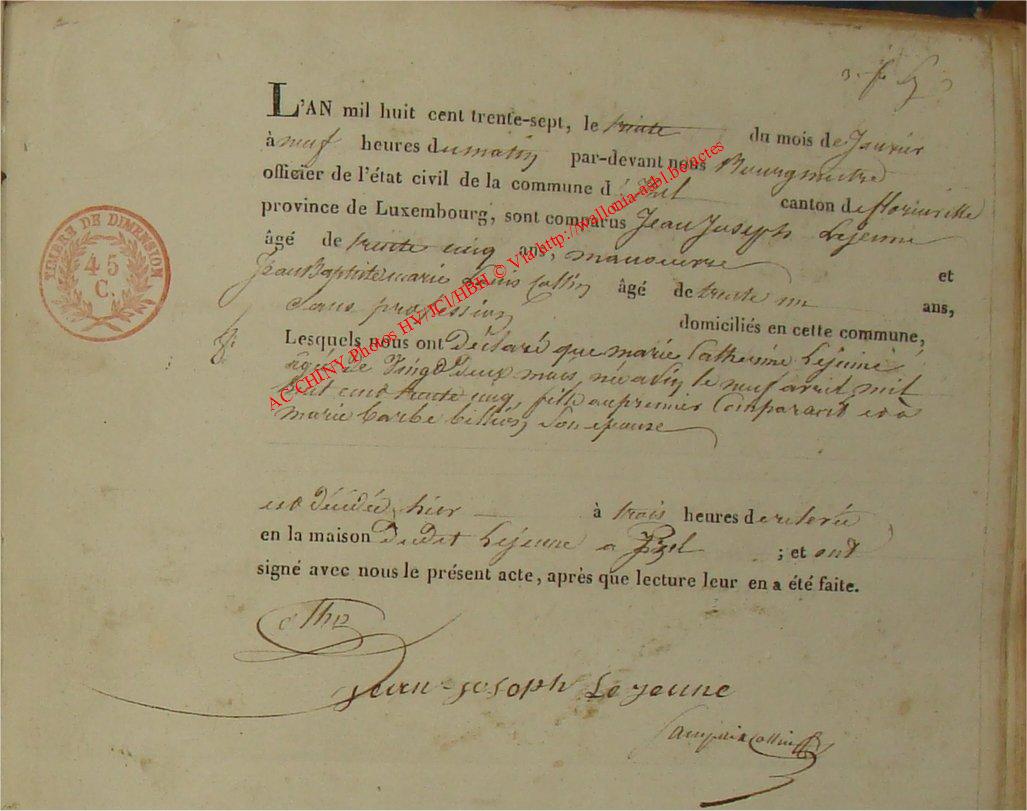 L'AN mil huit cent trente-sept, le trente du mois de Janvier
à neuf heures du matin par-devant nous Bourgmestre
officier de l'état civil de la commune d'Izel canton de florenville
province de Luxembourg, sont comparus Jean Joseph Lejeune
âgé de trente cinq ans, manoeuvre et
Jean Baptiste marie Louis Collin âgé de trente un ans,
Sans profession domiciliés en cette commune,
Lesquels nous ont Déclaré que marie Catherine Lejeune
agée de Vingt Deux mois, née a Izel le neuf avril mil
huit cent trente cinq, fille au premier Comparant et à
marie barbe, Son épouse
est décédée hier à trois heures de relevée
en la maison Dudit Lejeune a Izel ; et ont
signé avec nous le présent acte, après que lecture leur en a été faite.
Jean-Joseph Lejeune
Collin
TIMBRE DE DIMENSION
45
C.
AC-CHINY Photos HV/JCl/HBH © Via http://wallonia-asbl.be/actes